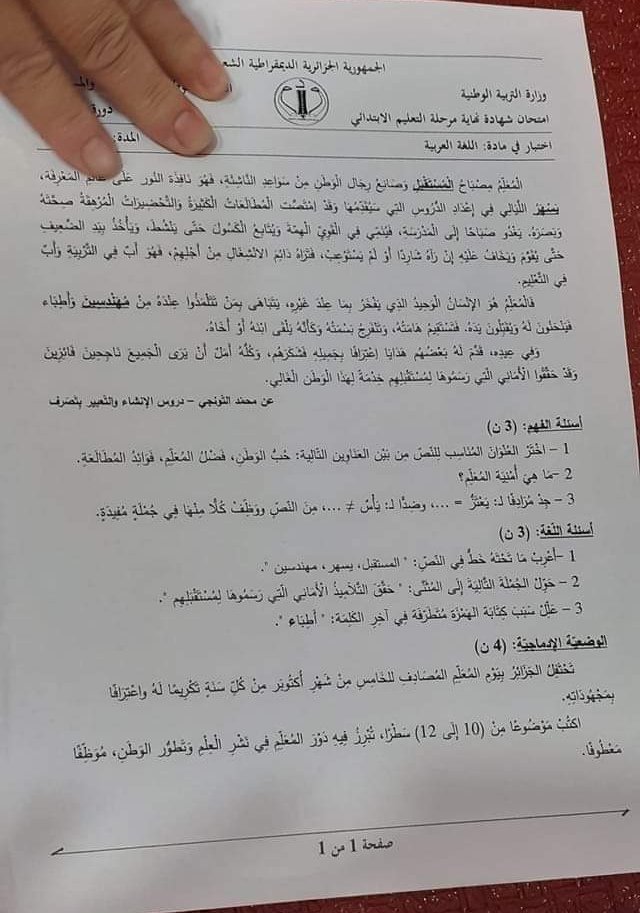 الجمهورية الجزائرية الديمقراطية
وزارة التربية الوطنية
امتحان شهادة نهاية مرحلة التعليم الابتدائي دورة
اختبار في مادة: اللغة العربية المدة:
المُعَلِّمُ مِصْبَاحُ المُسْتَقْبَلِ وَصَانِعُ رِجَالِ الْوَطَنِ مِنْ سَوَاعِدِ النَّاشِئَةِ، فَهُوَ نَافِذَةُ النُّورِ عَلَى عَالَمِ المَعْرِفَةِ،
يَسْهَرُ اللَّيَالِي فِي إِعْدَادِ الدُّرُوسِ الَتِي سَيُقَدِّمُهَا وَقَدْ اِمْتَصَّتْ الْمُطَالَعَاتُ الْكَثِيرَةُ وَالتَّحْضِيرَاتُ الْمُرْهِقَةُ صِحَّتَهُ
وَبَصَرَهُ. يَغْدُو صَبَاحًا إِلَى الْمَدْرَسَةِ، فَيُنَمِّي فِي الْقَوِيِّ الْهِمَّةَ وَيُتَابِعُ الْكَسُولَ حَتَّى يَنْشَطَ، وَيَأْخُذُ بِيَدِ الضَّعِيفِ
حَتَّى يَقُومَ وَيَخَافُ عَلَيْهِ إِنْ رَآهُ شَارِدًا أَوْ لَمْ يَسْتَوْعِبْ، فَتَرَاهُ دَائِمَ الانْشِغَالِ مِنْ أَجْلِهِمْ، فَهُوَ أَبٌ فِي التَّرْبِيَةِ وَأَبٌ
فِي التَّعْلِيمِ.
فَالمُعَلِّمُ هُوَ الإِنْسَانُ الْوَحِيدُ الَّذِي يَفْخَرُ بِمَا عِنْدَ غَيْرِهِ، يَتَبَاهَى بِمَنْ تَتَلْمَذُوا عِنْدَهُ مِنْ مُهَنْدِسِينَ وَأَطِبَّاء
فَيَنْحَنُونَ لَهُ وَيُقَبِّلُونَ يَدَهُ. فَتَسْتَقِيمُ هَامَتُهُ، وَتَنْفَرِجُ بَسْمَتُهُ وَكَأَنَّهُ يَلْقَى ابْنَهُ أَوْ أَخَاهُ.
وَفِي عِيدِهِ، قَدَّمَ لَهُ بَعْضُهُمْ هَدَايَا اِعْتِرَافًا بِجَمِيلِهِ فَشَكَرَهُم، وَكُلُّهُ أَمَلٌ أَنْ يَرَى الْجَمِيعَ نَاجِحِينَ فَائِزِينَ
وَقَدْ حَقَّقُوا الْأَمَانِي الَّتِي رَسَمُوهَا لِمُسْتَقْبَلِهِم خِدْمَةً لِهَذَا الْوَطَنِ الْغَالِي.
عن محمد التونجي – دروس الإنشاء والتعبير بتصرف
أسئلة الفهم: (3 ن)
1 – اخْتَرْ العُنْوَانَ المُنَاسِبَ لِلنَّصِّ مِن بَيْنِ العَنَاوِين التَّالِيَة: حُبُّ الوَطَنِ، فَضْلُ المُعَلِّمِ، فَوَائِدُ المُطَالَعَةِ.
2 –مَا هِيَ أُمْنِيَة المُعَلِّمِ؟
3 – جِدْ مُرَادِفًا لـ: يَعْتَزُّ = ...، وضِدًّا لـ: يَأْسٌ ≠ ...، مِنَ النَّصِّ ووَظِّفْ كُلًّا مِنْهَا فِي جُمْلَةٍ مُفِيدَةٍ.
أسئلة اللغة: (3 ن)
1 –أَعْرِبْ مَا تَحْتَهُ خَطٌّ فِي النَّصِّ: " المستقبل، يسهر، مهندسين ".
2 – حَوِّلْ الجُمْلَةَ التَّالِيَةَ إِلَى المُثَنَّى: " حَقَّقَ التَّلَامِيذُ الْأَمَانِي الَّتِي رَسَمُوهَا لِمُسْتَقْبَلِهِم ".
3 – عَلِّلْ سَبَبَ كِتَابَةِ الهَمْزَةِ مُتَطَرِّفَةً فِي آخِرِ الكَلِمَةِ: " أَطِبَاء ".
الوضعيّة الإدماجيّة: (4 ن)
تَحْتَفِلُ الجَزَائِرُ بِيَوْمِ المُعَلِّمِ المُصَادِف لِلخَامِسِ مِنْ شَهْرِ أُكْتُوبَر مِنْ كُلِّ سَنَةٍ تَكْرِيمًا لَهُ واعْتِرَافًا
بِمَجْهُودَاتِهِ.
اكتُبْ مَوْضُوعًا مِنْ (10 إلى 12) سَطْرًا، تُبْرِزُ فِيهِ دَوْرَ المُعَلِّمِ فِي نَشْرِ العِلْمِ وَتَطَوُّرِ الوَطَنِ، مُوَظِّفًا
مَعْطُوفًا.
صفحة 1 من 1